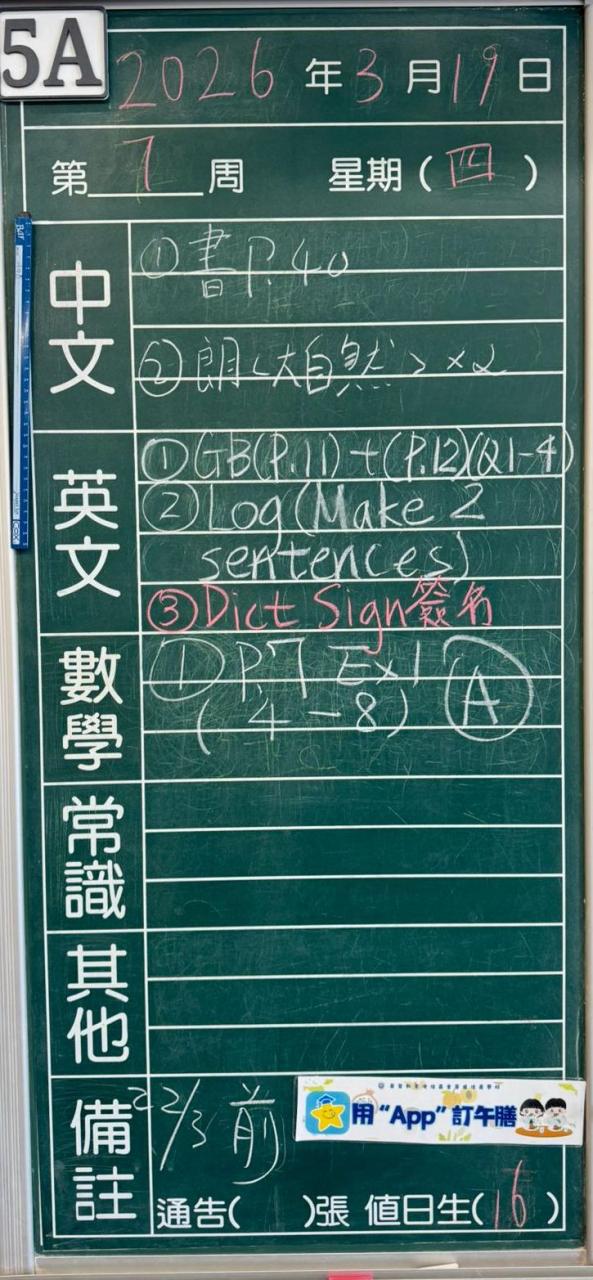 5A
2026年3月19日
第7周 星期(四)
中文
①書P.40
②朗<大自然>×2
英文
①GB(P.11)+(P.12)(Q1-4)
②Log(Make 2
sentences)
③Dict Sign簽名
數學
①P.7 Ex1 Ⓐ
(4-8)
常識
其他
備註
22/3前
用“App”訂午膳
通告( )張 值日生(16)